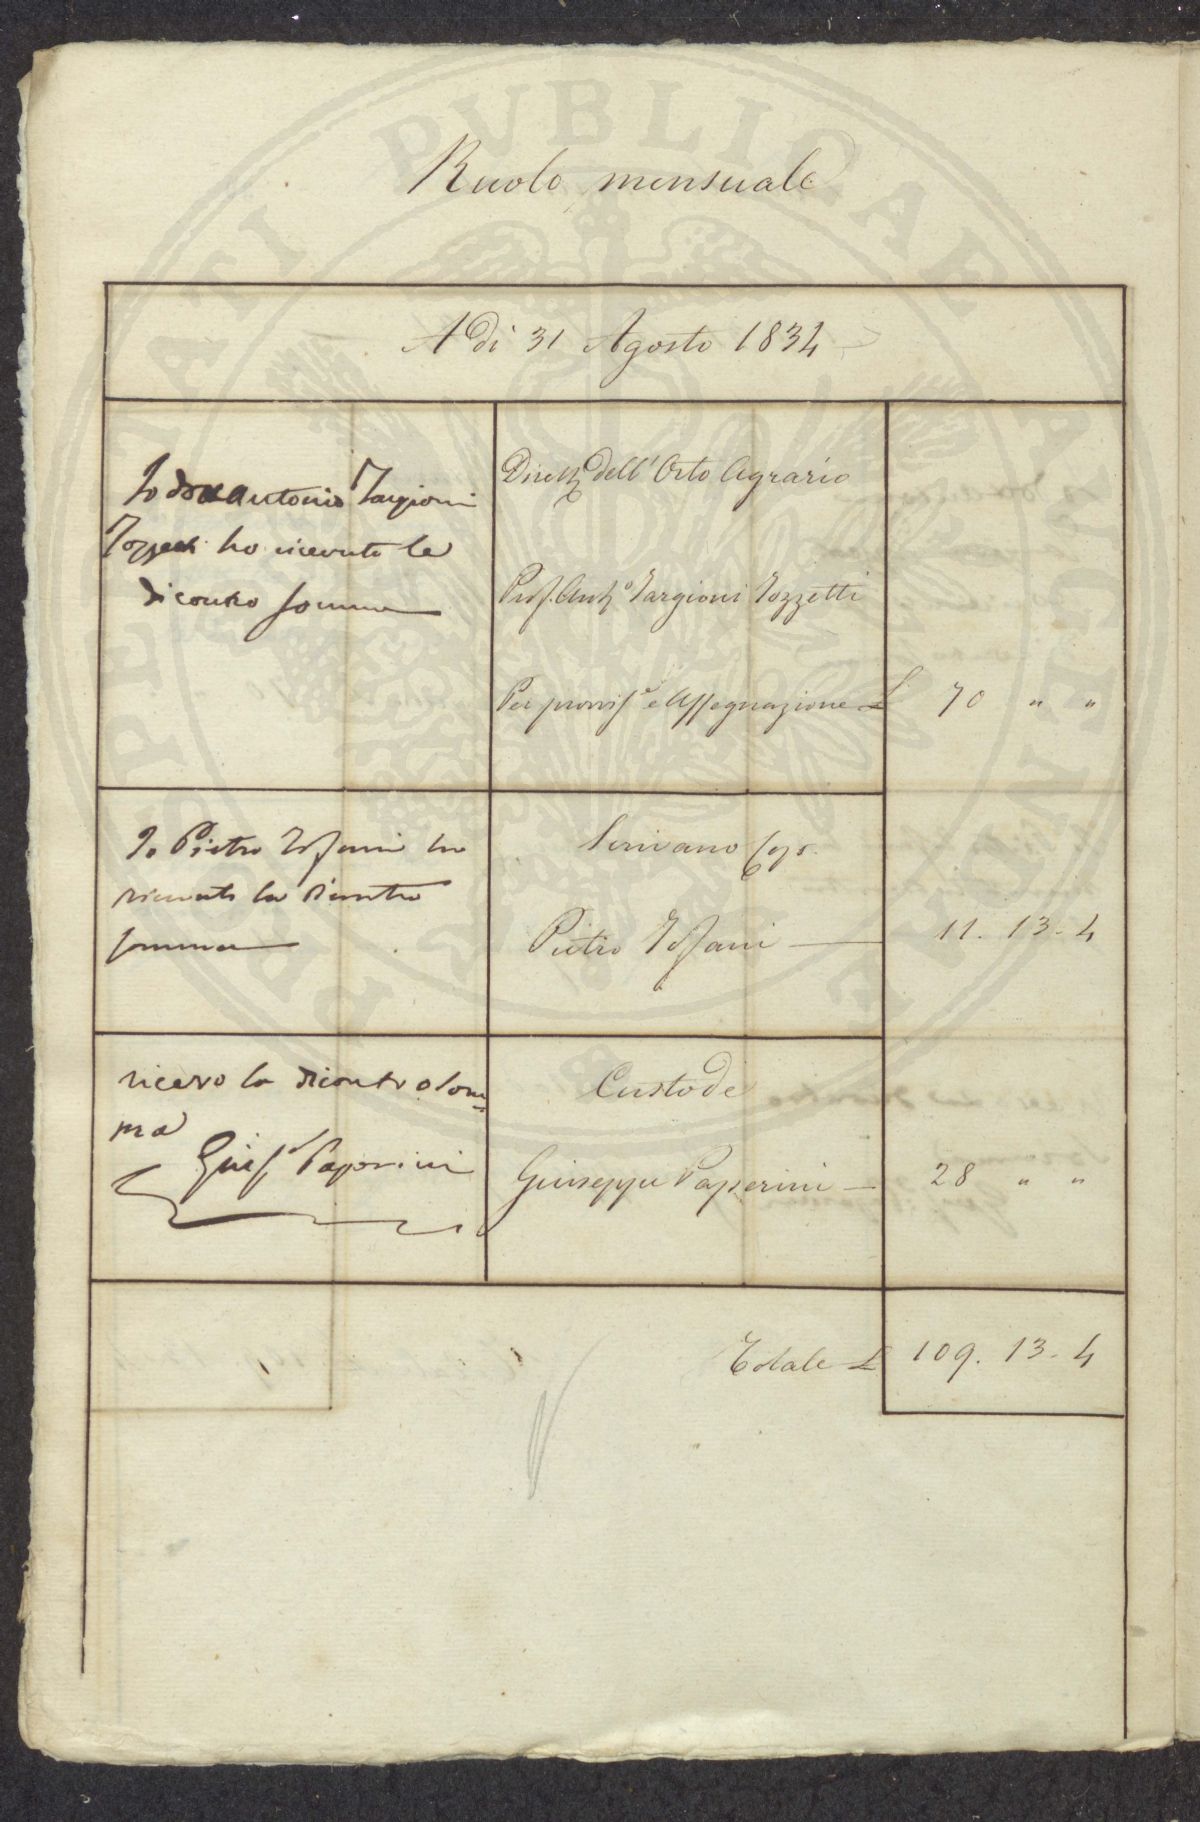 PROSPERITATI PVBLICAE AVGENDAE
Ruolo mensuale
A dì 31 Agosto 1834
Io dott Antonio Targioni
Tozzetti ho ricevuto la
dicontro somma
Dirett.e dell' Orto Agrario
Prof. Ant.o Targioni Tozzetti
Per provvis.e e Assegnazione £ 70 " "
Io Pietro Tofani ho
ricevuto la dicontro
somma
Scrivano
Pietro Tofani — 11. 13. 4
ricevo la dicontro som=
ma
Gius.e Paperini
Custode
Giuseppe Paperini — 28 " "
Totale £ 109. 13. 4